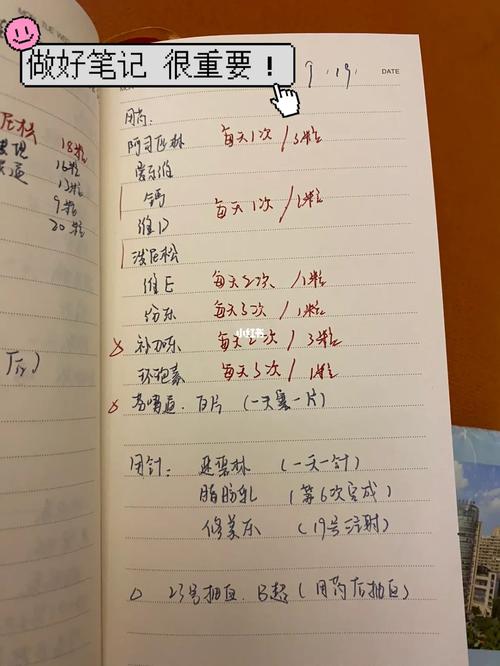 做好笔记 很重要！
9.19.
DATE
用药：
阿司匹林 每天1次/3粒
爱乐维
钙
每天1次/1粒
维D
泼尼松
维E 每天2次/1粒
芬乐 每天3次/1粒
补加乐 每天2次/3粒
环孢素 每天3次/1粒
百片（一天塞一片）
用针：
（一天一针）
脂肪乳（第6次完成）
修美乐（19号注射）
23号抽血.B超（用药后抽血）
尼松 18粒
16粒
13粒
9粒
20粒
小红书